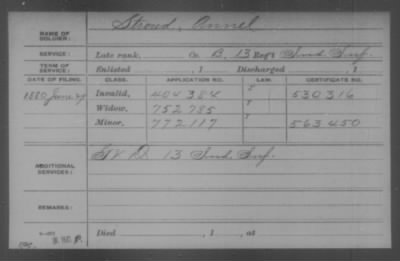 NAME OF SOLDIER: Stroud, Annel
SERVICE: Late rank, Co. B, 13 Reg't Ind Inf.
TERM OF SERVICE: Enlisted , 1 Discharged , 1
DATE OF FILING. CLASS. APPLICATION NO. LAW. CERTIFICATE NO.
1880 June 29 Invalid, 404384 530316
Widow, 752785
Minor, 772117 563450
ADDITIONAL SERVICES: D 13 Ind. Inf.
REMARKS:
Died , 1 , at